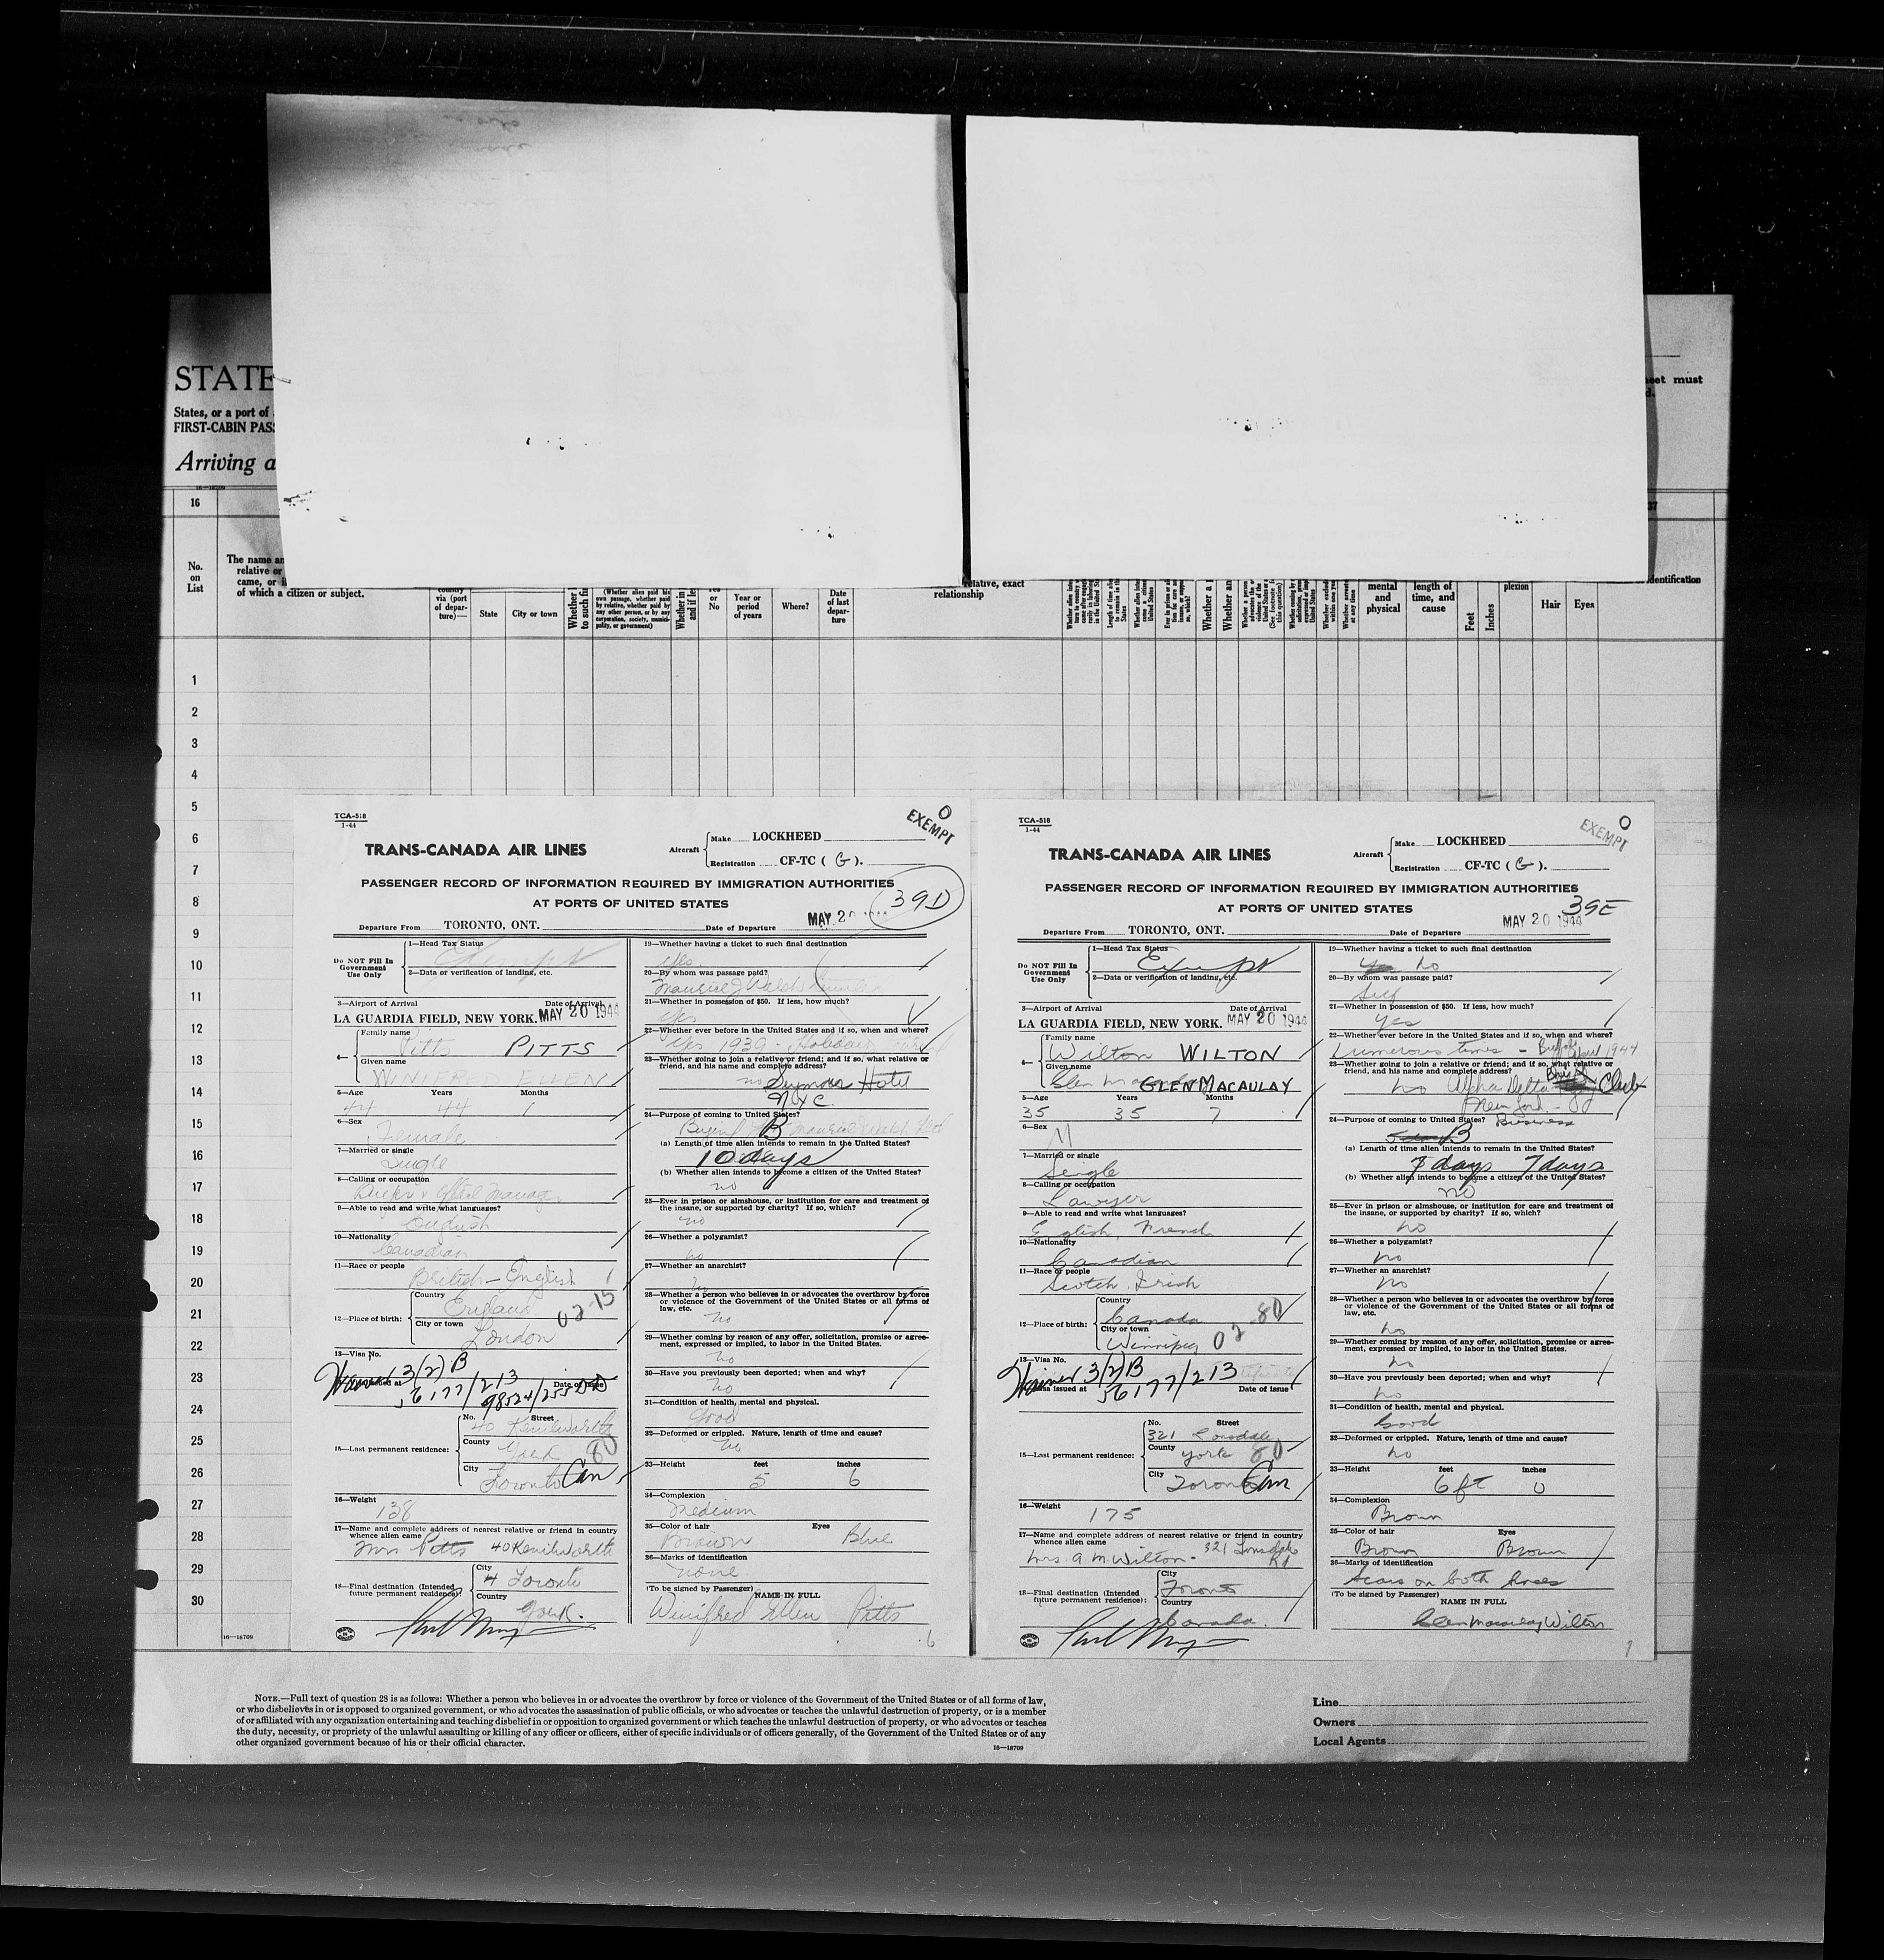 STATE
States, or a port of
FIRST-CABIN PAS
Arriving a
eet must
d.
16
37
No.
on
List
The name an
relative or
came, or i
of which a citizen or subject.
country
via (port
of depar-
ture)—
State
City or town
Whether
to such fi
(Whether alien paid his
own passage, whether paid
by relative, whether paid by
any other person, or by any
corporation, society, munici-
pality, or government)
Whether in
and if le
Yes
or
No
Year or
period
of years
Where?
Date
of last
depar-
ture
relative, exact
relationship
Whether a
Whether an
mental
and
physical
length of
time, and
cause
Feet
Inches
plexion
Hair
Eyes
identification
1
2
3
4
5
6
7
8
9
10
11
12
13
14
15
16
17
18
19
20
21
22
23
24
25
26
27
28
29
30
16—18709
TCA-518
1-44
O
EXEMPT
TRANS-CANADA AIR LINES
Aircraft
Make LOCKHEED
Registration CF-TC ( G ).
PASSENGER RECORD OF INFORMATION REQUIRED BY IMMIGRATION AUTHORITIES
AT PORTS OF UNITED STATES
39D
Departure From TORONTO, ONT. Date of Departure MAY 20
Do NOT Fill In
Government
Use Only
1—Head Tax Status
Exempt
2—Data or verification of landing, etc.
3—Airport of Arrival Date of Arrival
LA GUARDIA FIELD, NEW YORK. MAY 20 1944
4—
Family name
Pitts PITTS
Given name
ELLEN
5—Age Years Months
44 44 1
6—Sex
Female
7—Married or single
Single
8—Calling or occupation
Buyer & Office Manager
9—Able to read and write what languages?
English
10—Nationality
Canadian
11—Race or people
British - English
12—Place of birth:
Country
England
02-15
City or town
London
13—Visa No.
Waiver 3(2) B
56177/213
Date of issue
15—Last permanent residence:
No. Street
40 Kenilworth
County
York 80
City
Toronto Can
16—Weight
138
17—Name and complete address of nearest relative or friend in country
whence alien came
Mrs Pitts 40 Kenilworth
18—Final destination (Intended
future permanent residence):
City
Toronto
Country
York.
19—Whether having a ticket to such final destination
Yes
20—By whom was passage paid?
Maurice J Walsh Limited
21—Whether in possession of $50. If less, how much?
Yes
22—Whether ever before in the United States and if so, when and where?
Yes 1939 - Holiday
23—Whether going to join a relative or friend; and if so, what relative or
friend, and his name and complete address?
no Seymour Hotel
NYC.
24—Purpose of coming to United States?
B
(a) Length of time alien intends to remain in the United States?
10 days
(b) Whether alien intends to become a citizen of the United States?
no
25—Ever in prison or almshouse, or institution for care and treatment of
the insane, or supported by charity? If so, which?
no
26—Whether a polygamist?
no
27—Whether an anarchist?
no
28—Whether a person who believes in or advocates the overthrow by force
or violence of the Government of the United States or all forms of
law, etc.
no
29—Whether coming by reason of any offer, solicitation, promise or agree-
ment, expressed or implied, to labor in the United States.
no
30—Have you previously been deported; when and why?
no
31—Condition of health, mental and physical.
Good
32—Deformed or crippled. Nature, length of time and cause?
no
33—Height feet inches
5 6
34—Complexion
Medium
35—Color of hair Eyes
Brown Blue
36—Marks of identification
none
(To be signed by Passenger)
NAME IN FULL
Winifred Ellen Pitts
6
TCA-518
1-44
O
EXEMPT
TRANS-CANADA AIR LINES
Aircraft
Make LOCKHEED
Registration CF-TC ( G ).
PASSENGER RECORD OF INFORMATION REQUIRED BY IMMIGRATION AUTHORITIES
AT PORTS OF UNITED STATES
39E
Departure From TORONTO, ONT. Date of Departure MAY 20 1944
Do NOT Fill In
Government
Use Only
1—Head Tax Status
Exempt
2—Data or verification of landing, etc.
3—Airport of Arrival Date of Arrival
LA GUARDIA FIELD, NEW YORK. MAY 20 1944
4—
Family name
Wilton WILTON
Given name
Glen GLEN MACAULAY
5—Age Years Months
35 35 7
6—Sex
M
7—Married or single
Single
8—Calling or occupation
Lawyer
9—Able to read and write what languages?
English, French
10—Nationality
Canadian
11—Race or people
Scotch, Irish
12—Place of birth:
Country
Canada
02-80
City or town
Winnipeg
13—Visa No.
Waiver 3(2)B
56177/213
Visa issued at Date of issue
15—Last permanent residence:
No. Street
321 Lonsdale
County
York 80-
City
Toronto Can
16—Weight
175
17—Name and complete address of nearest relative or friend in country
whence alien came
Mrs. A. M. Wilton - 321 Lonsdale Rd
18—Final destination (Intended
future permanent residence):
City
Toronto
Country
Canada.
19—Whether having a ticket to such final destination
no
20—By whom was passage paid?
Self
21—Whether in possession of $50. If less, how much?
Yes
22—Whether ever before in the United States and if so, when and where?
Numerous times - Buffalo April 1944
23—Whether going to join a relative or friend; and if so, what relative or
friend, and his name and complete address?
no Alpha Delta Phi Club
New York
24—Purpose of coming to United States? Business
B
(a) Length of time alien intends to remain in the United States?
7 days 7 days
(b) Whether alien intends to become a citizen of the United States?
no
25—Ever in prison or almshouse, or institution for care and treatment of
the insane, or supported by charity? If so, which?
no
26—Whether a polygamist?
no
27—Whether an anarchist?
no
28—Whether a person who believes in or advocates the overthrow by force
or violence of the Government of the United States or all forms of
law, etc.
no
29—Whether coming by reason of any offer, solicitation, promise or agree-
ment, expressed or implied, to labor in the United States.
no
30—Have you previously been deported; when and why?
no
31—Condition of health, mental and physical.
Good
32—Deformed or crippled. Nature, length of time and cause?
no
33—Height feet inches
6 ft 0
34—Complexion
Brown
35—Color of hair Eyes
Brown Brown
36—Marks of identification
Scars on both knees
(To be signed by Passenger)
NAME IN FULL
Glen Macaulay Wilton
NOTE.—Full text of question 28 is as follows: Whether a person who believes in or advocates the overthrow by force or violence of the Government of the United States or of all forms of law,
or who disbelieves in or is opposed to organized government, or who advocates the assassination of public officials, or who advocates or teaches the unlawful destruction of property, or is a member
of or affiliated with any organization entertaining and teaching disbelief in or opposition to organized government or which teaches the unlawful destruction of property, or who advocates or teaches
the duty, necessity, or propriety of the unlawful assaulting or killing of any officer or officers, either of specific individuals or of officers generally, of the Government of the United States or of any
other organized government because of his or their official character.
16—18709
Line
Owners
Local Agents